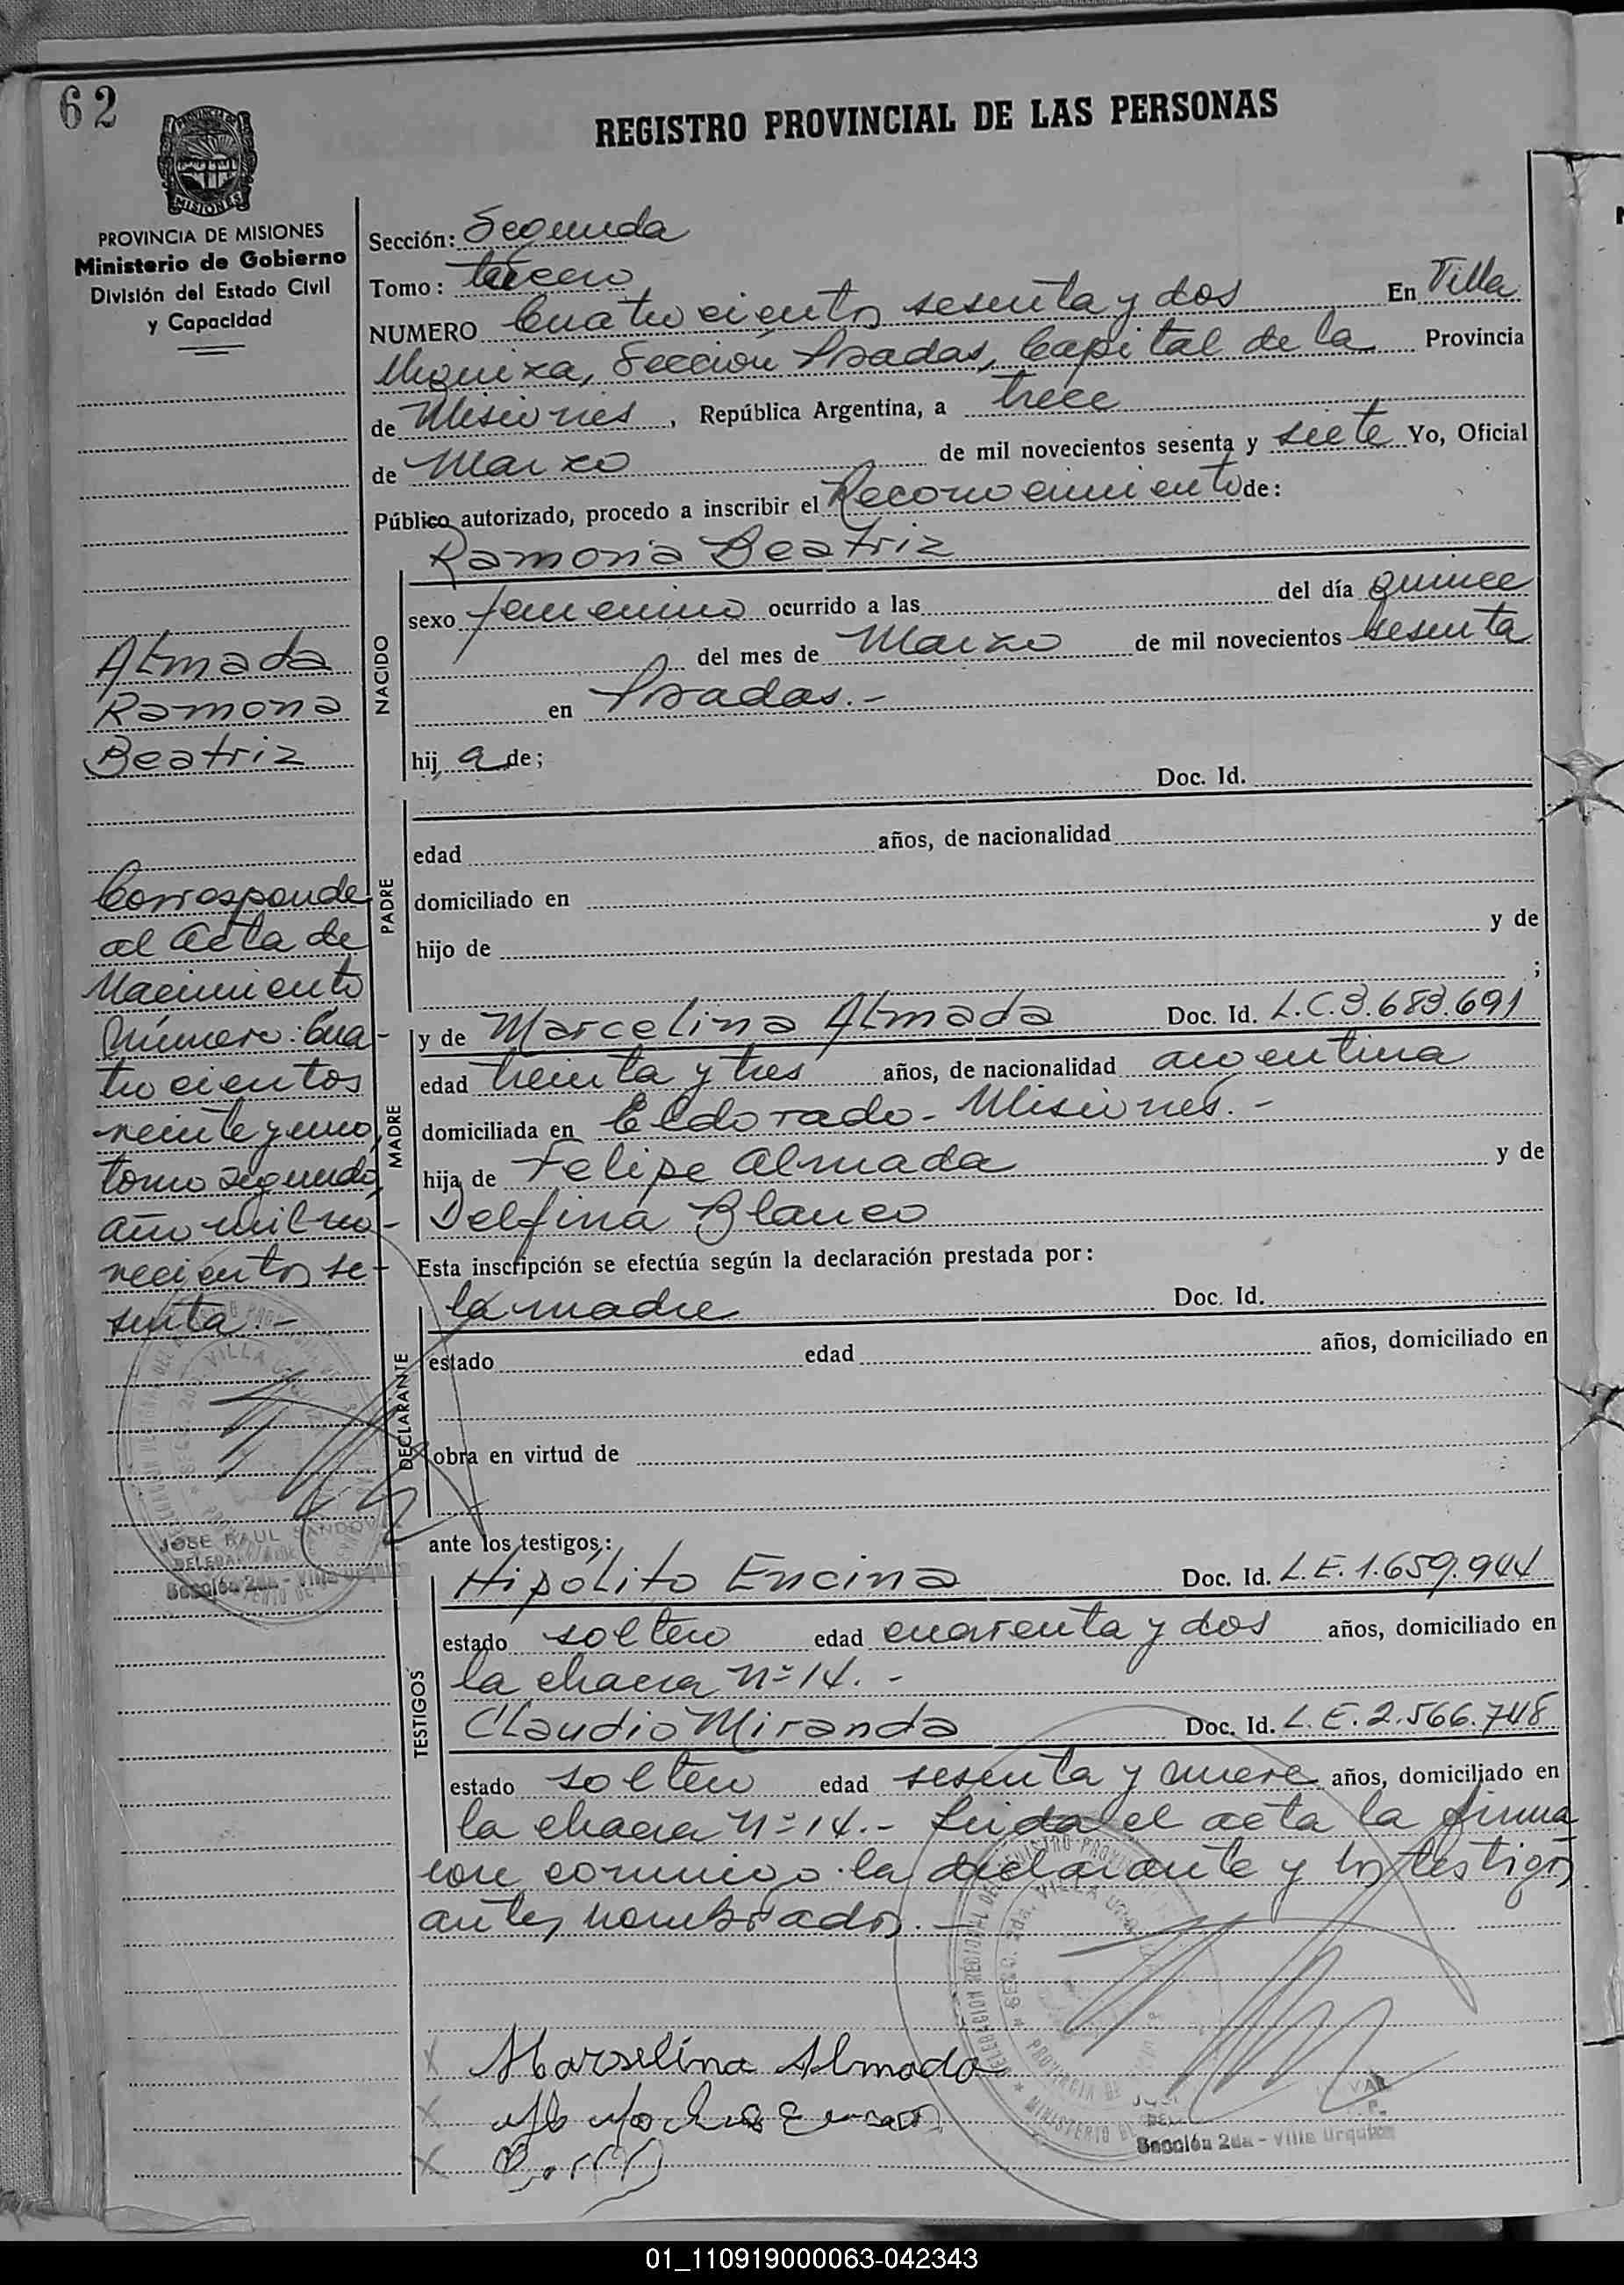 62
REGISTRO PROVINCIAL DE LAS PERSONAS
MISIONES
PROVINCIA DE MISIONES
Ministerio de Gobierno
División del Estado Civil
y Capacidad
Sección: Segunda
Tomo: tercero
NUMERO Cuatrocientos sesenta y dos En Villa
Urquiza, Sección Posadas, Capital de la Provincia
de Misiones, República Argentina, a trece
de Marzo de mil novecientos sesenta y siete Yo, Oficial
Público autorizado, procedo a inscribir el Reconocimiento de:
Ramona Beatriz
NACIDO
sexo femenino ocurrido a las del día quince
del mes de Marzo de mil novecientos sesenta
en Posadas.-
hij a de;
Almada
Ramona
Beatriz
PADRE
Doc. Id.
edad años, de nacionalidad
domiciliado en
hijo de y de
;
Corresponde
al Acta de
Nacimiento
Número: Cua-
trocientos
veinte y uno,
tomo segundo,
año mil no-
vecientos se-
senta -
MADRE
y de Marcelina Almada Doc. Id. L.C.3.683.691
edad treinta y tres años, de nacionalidad argentina
domiciliada en Eldorado - Misiones.-
hija de Felipe Almada y de
Delfina Blanco
Esta inscripción se efectúa según la declaración prestada por:
DECLARANTE
la madre Doc. Id.
estado edad años, domiciliado en
obra en virtud de
JOSE RAUL SANDOV
Sección 2da - Villa Urquiza
ante los testigos:
TESTIGOS
Hipólito Encina Doc. Id. L.E.1.659.944
estado soltero edad cuarenta y dos años, domiciliado en
la chacra nº 14.-
Claudio Miranda Doc. Id. L.E.2.566.748
estado soltero edad sesenta y nueve años, domiciliado en
la chacra nº 14.- Leida el acta la firma
con conmigo la declarante y los testigos
antes nombrados.-
Marselina Almada
Sección 2da - Villa Urquiza
01_110919000063-042343